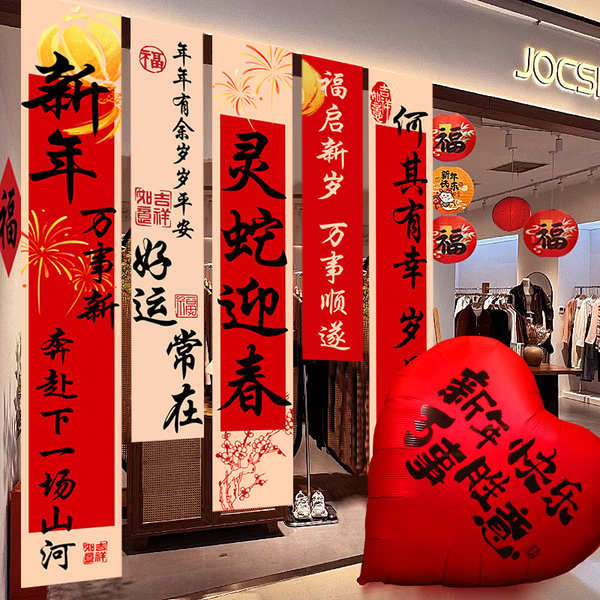 新年
万事新
奔赴下一场山河
吉祥如意
福
年年有余岁岁平安
吉祥如意
好运
福
常在
灵蛇迎春
福启新岁 万事顺遂
吉祥如意
何其有幸 岁
JOCS
福
福
新年快乐
福
福
新年快乐
万事胜意